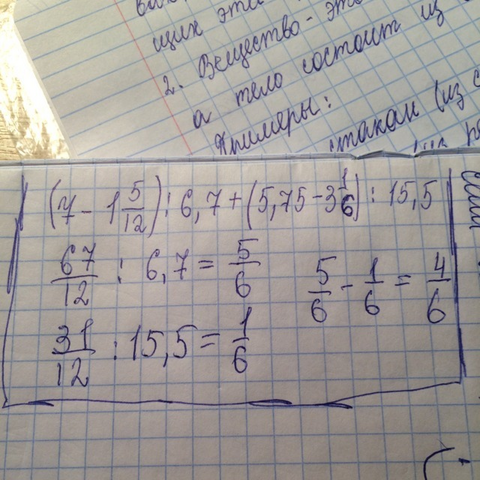 щих эти
2. Вещество - это
а тело состоит из
Примеры:
стакан (из с
(7 - 1 5/12) : 6,7 + (5,75 - 3 1/6) : 15,5
67/12 : 6,7 = 5/6
5/6 - 1/6 = 4/6
31/12 : 15,5 = 1/6